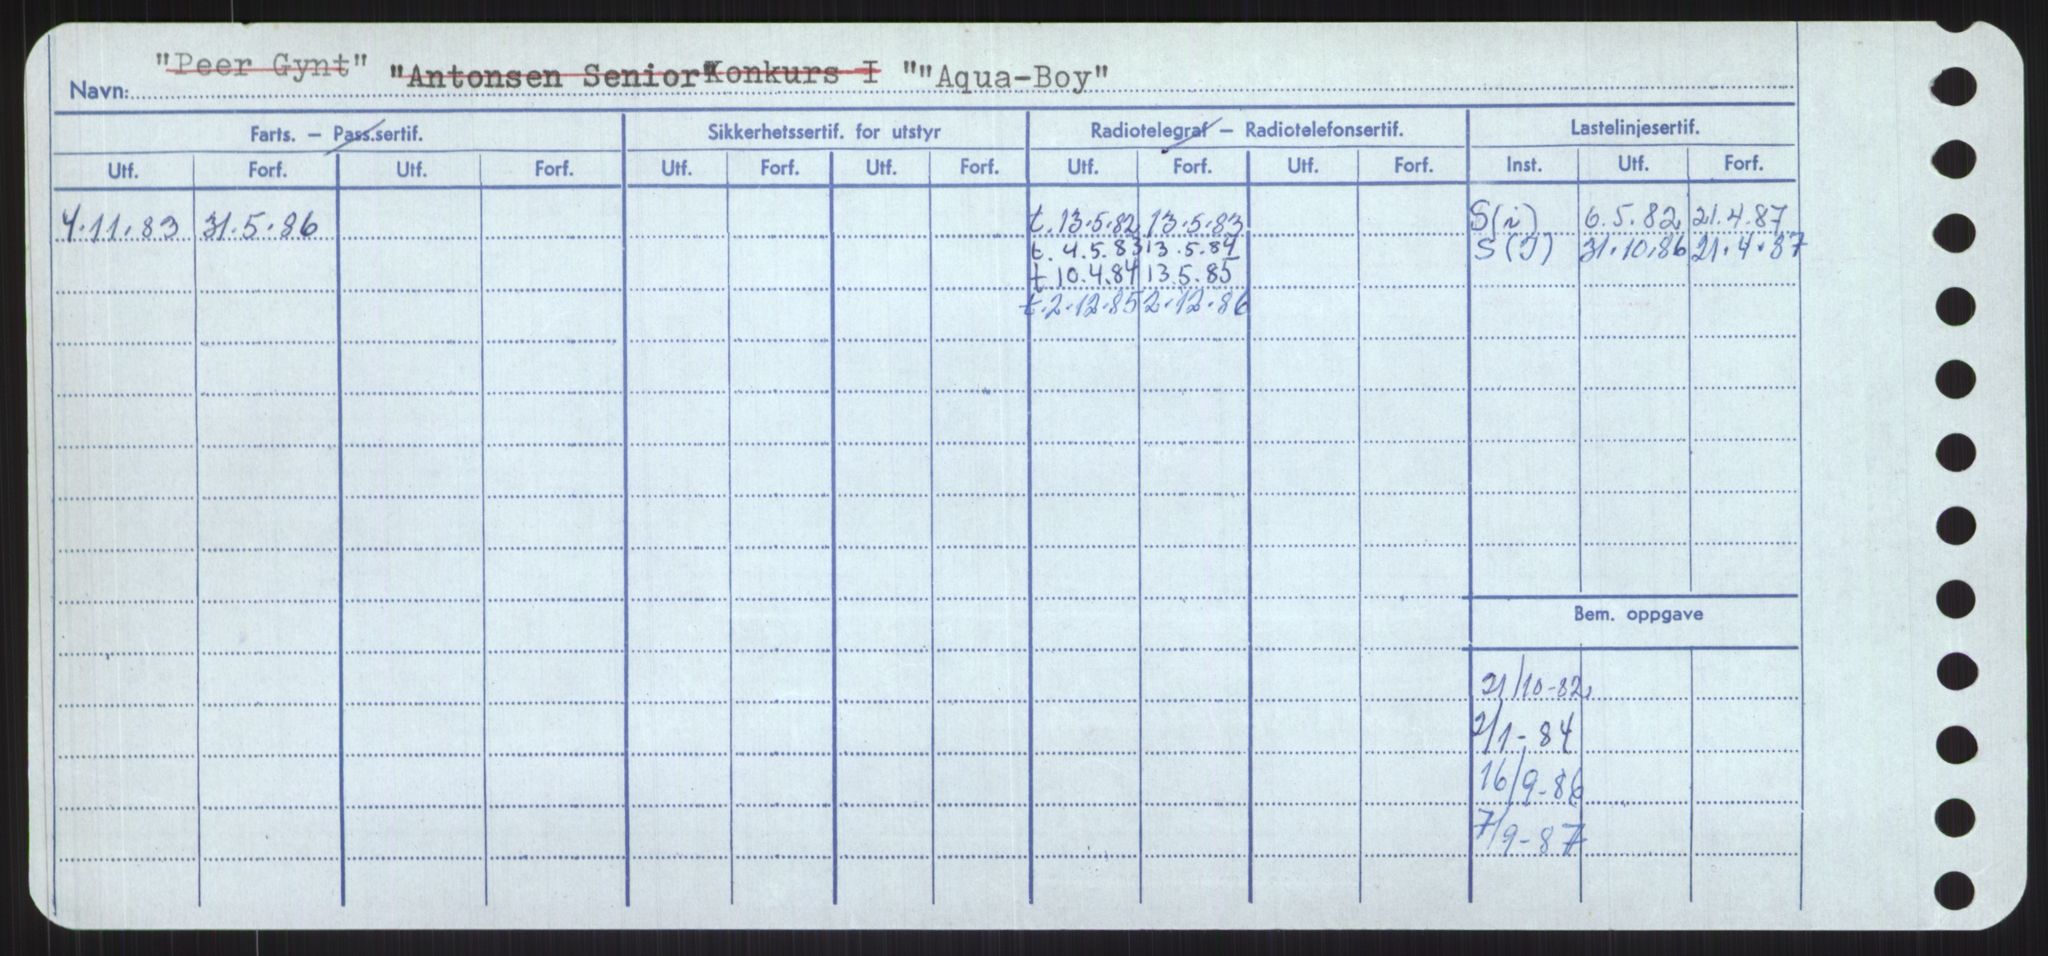 Navn: "Peer Gynt" "Antonsen Senior" Konkurs I " "Aqua-Boy"
Farts. – Pass.sertif. Sikkerhetssertif. for utstyr Radiotelegraf – Radiotelefonsertif. Lastelinjesertif.
Utf. Forf. Utf. Forf. Utf. Forf. Utf. Forf. Utf. Forf. Utf. Forf. Inst. Utf. Forf.
4.11.83 31.5.86 t. 13.5.82 13.5.83 S(i) 6.5.82 21.4.87
t. 4.5.83 13.5.84 S(I) 31.10.86 21.4.87
t 10.4.84 13.5.85
t. 2.12.85 2.12.86
Bem. oppgave
21/10-82
2/1-84
16/9-86
7/9-87